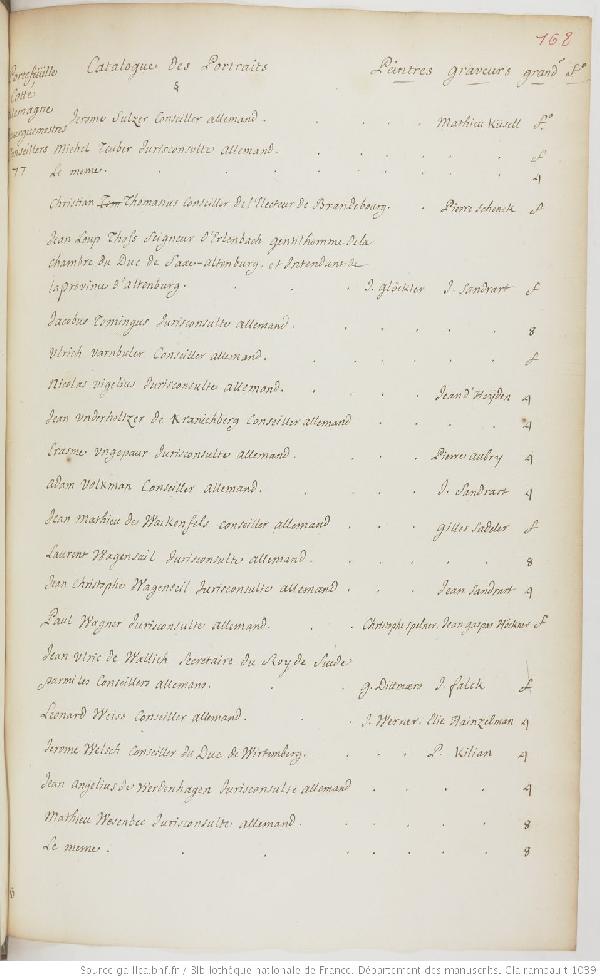 168
Portefüille Catalogue des Portraits Peintres graveurs grandr fo
Cotté §
Allemagne
Jerome Sulzer Conseiller allemand. Mathieu Küsell fo.
Bourguemestres
Conseillers Michel Teuber Jurisconsulte Allemand. f
77 Le meme. 4
Christian Tom Thomanus Conseiller de l'Electeur de Brandebourg. Pierre Schenck f
Jean Loup Thoss Seigneur d'Erlenbach gentilhomme de la
chambre du Duc de Saxe-Altenburg. et Intendant de
la province d'Altenburg. J. Glöckler J. Sandrart f
Jacobus Tomingus Jurisconsulte allemand. 8
Ulrich Varnbuler Conseiller allemand. f
Nicolas Vigelius Jurisconsulte allemand. Jean d'Heyden 4
Jean Underholtzer de Kranichberg Conseiller allemand 4
Erasme Ungepaur Jurisconsulte allemand. Pierre Aubry 4
Adam Volkman Conseiller allemand. J. Sandrart 4
Jean Mathieu de Wackenfels conseiller allemand Gilles Sadeler f
Laurent Wagenseil Jurisconsulte allemand. 8
Jean Christophe Wagenseil Jurisconsulte allemand Jean Sandrart 4
Paul Wagner Jurisconsulte allemand. Christophe Jean Gaspar Höckner f
Jean Ulric de Wallich Secretaire du Roy de Suede
parmi les Conseillers allemans. g. Dittmaers J. falck f
Leonard Weiss Conseiller allemand. J. Werner. Elie Hainzelman 4
Jerome Welsch Conseiller du Duc de Wirtemberg. P. Kilian 4
Jean Angelius de Werdenhagen Jurisconsulte allemand 4
Mathieu Wesenbec Jurisconsulte allemand. 8
Le meme. 8
Source gallica.bnf.fr / Bibliothèque nationale de France. Département des manuscrits. Clairambault 1039